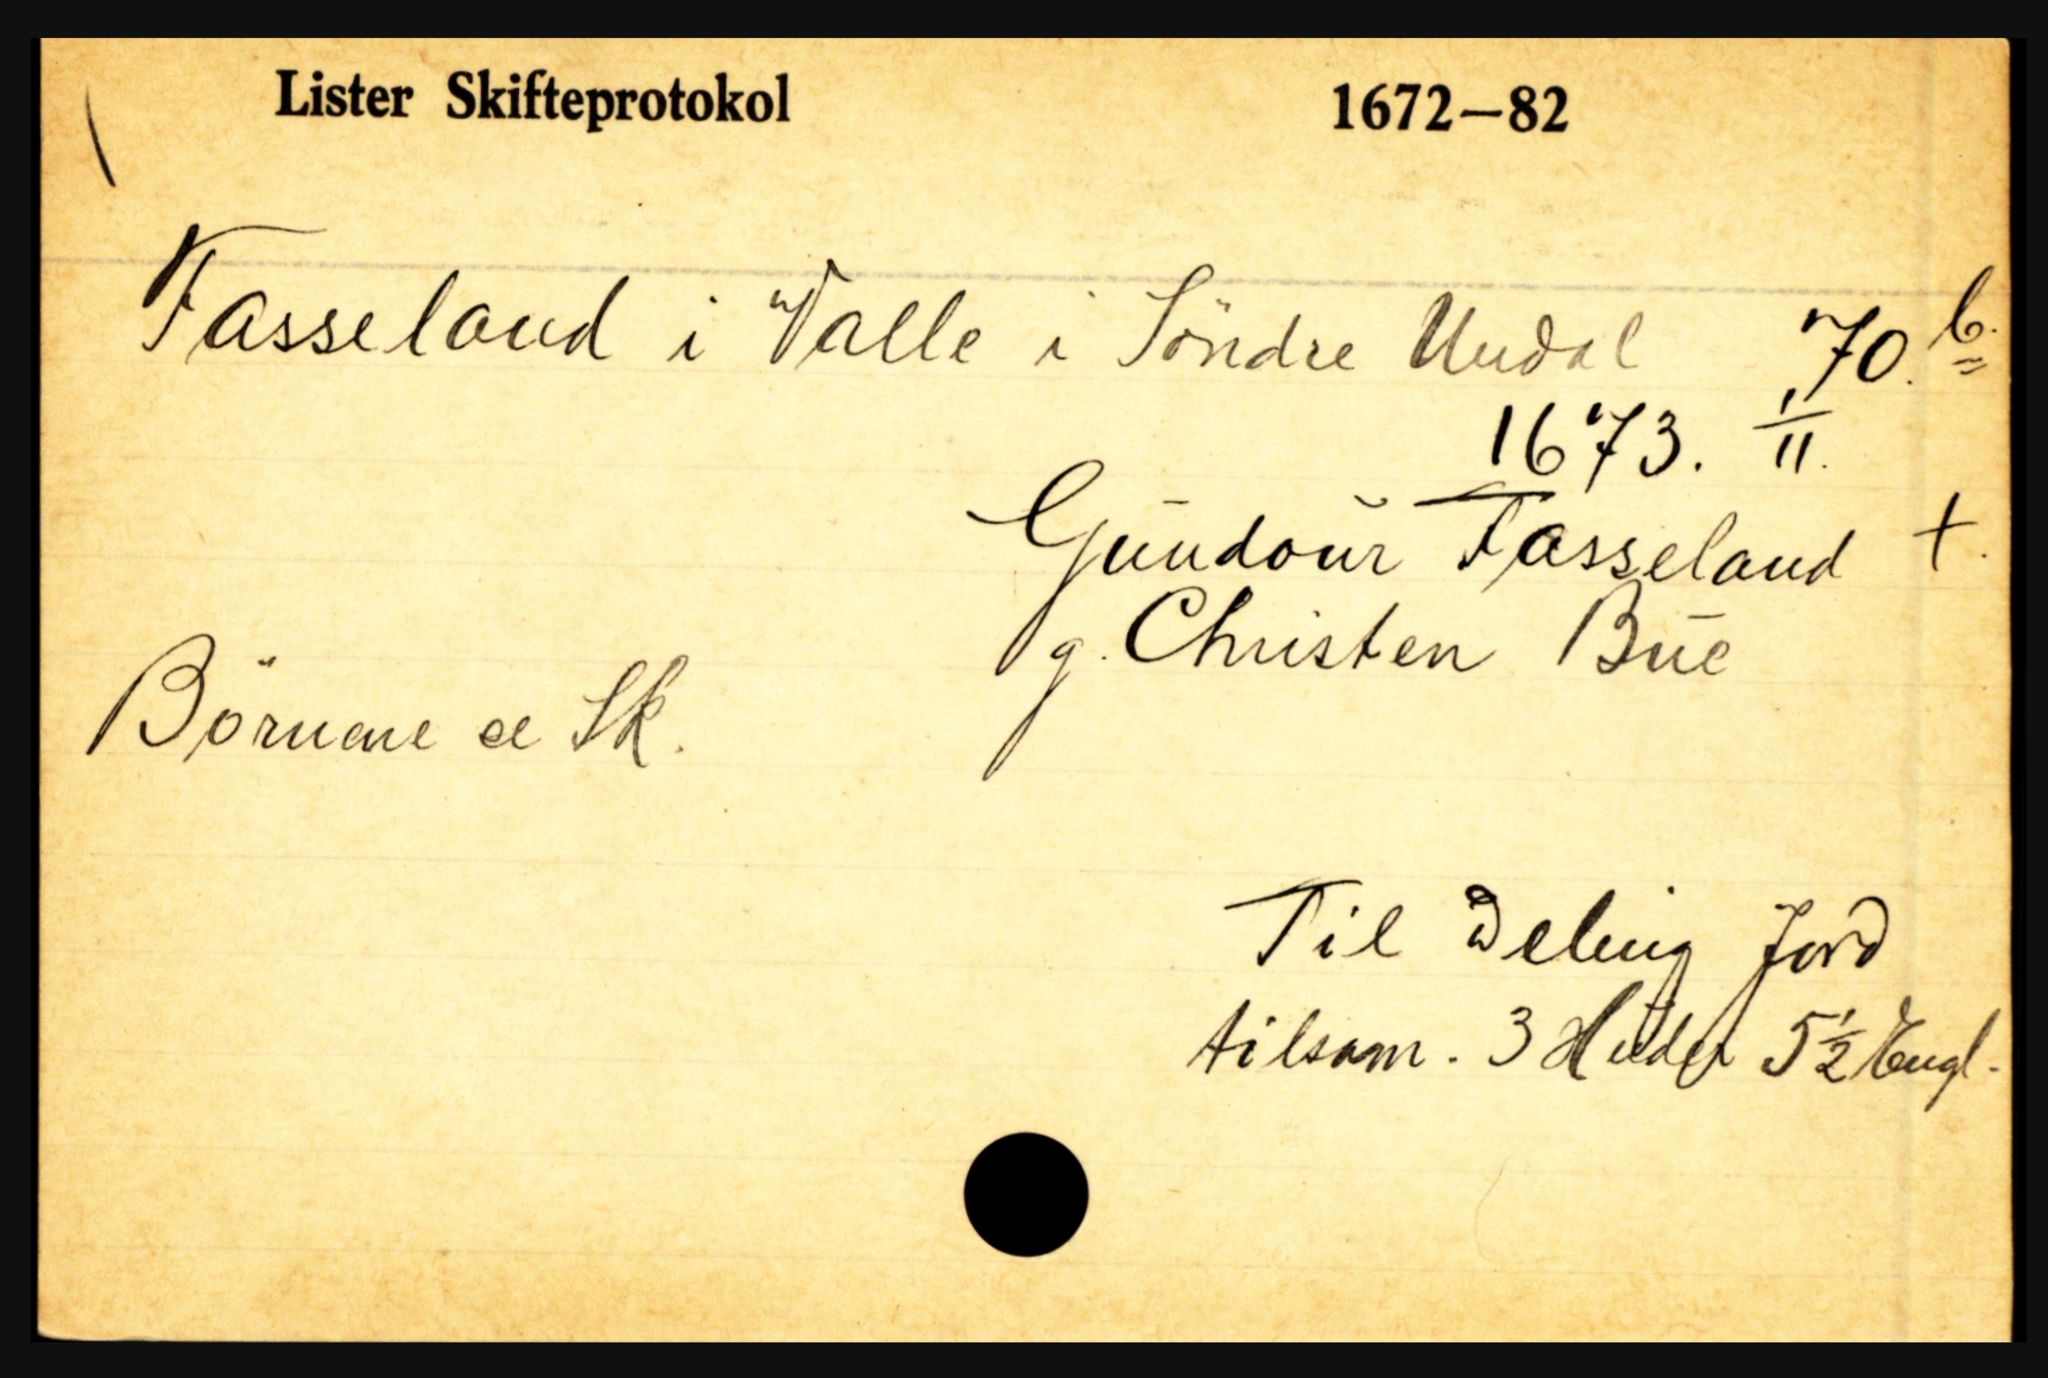 Lister Skifteprotokol 1672–82
Fasseland i Valle i Söndre Undal 70.b.
1673. 1/11.
Gundour Fasseland +.
g. Christen Būe
Börnene se Sk.
Til Deling Jord
tilsam. 3 Huder 5½ Engl.